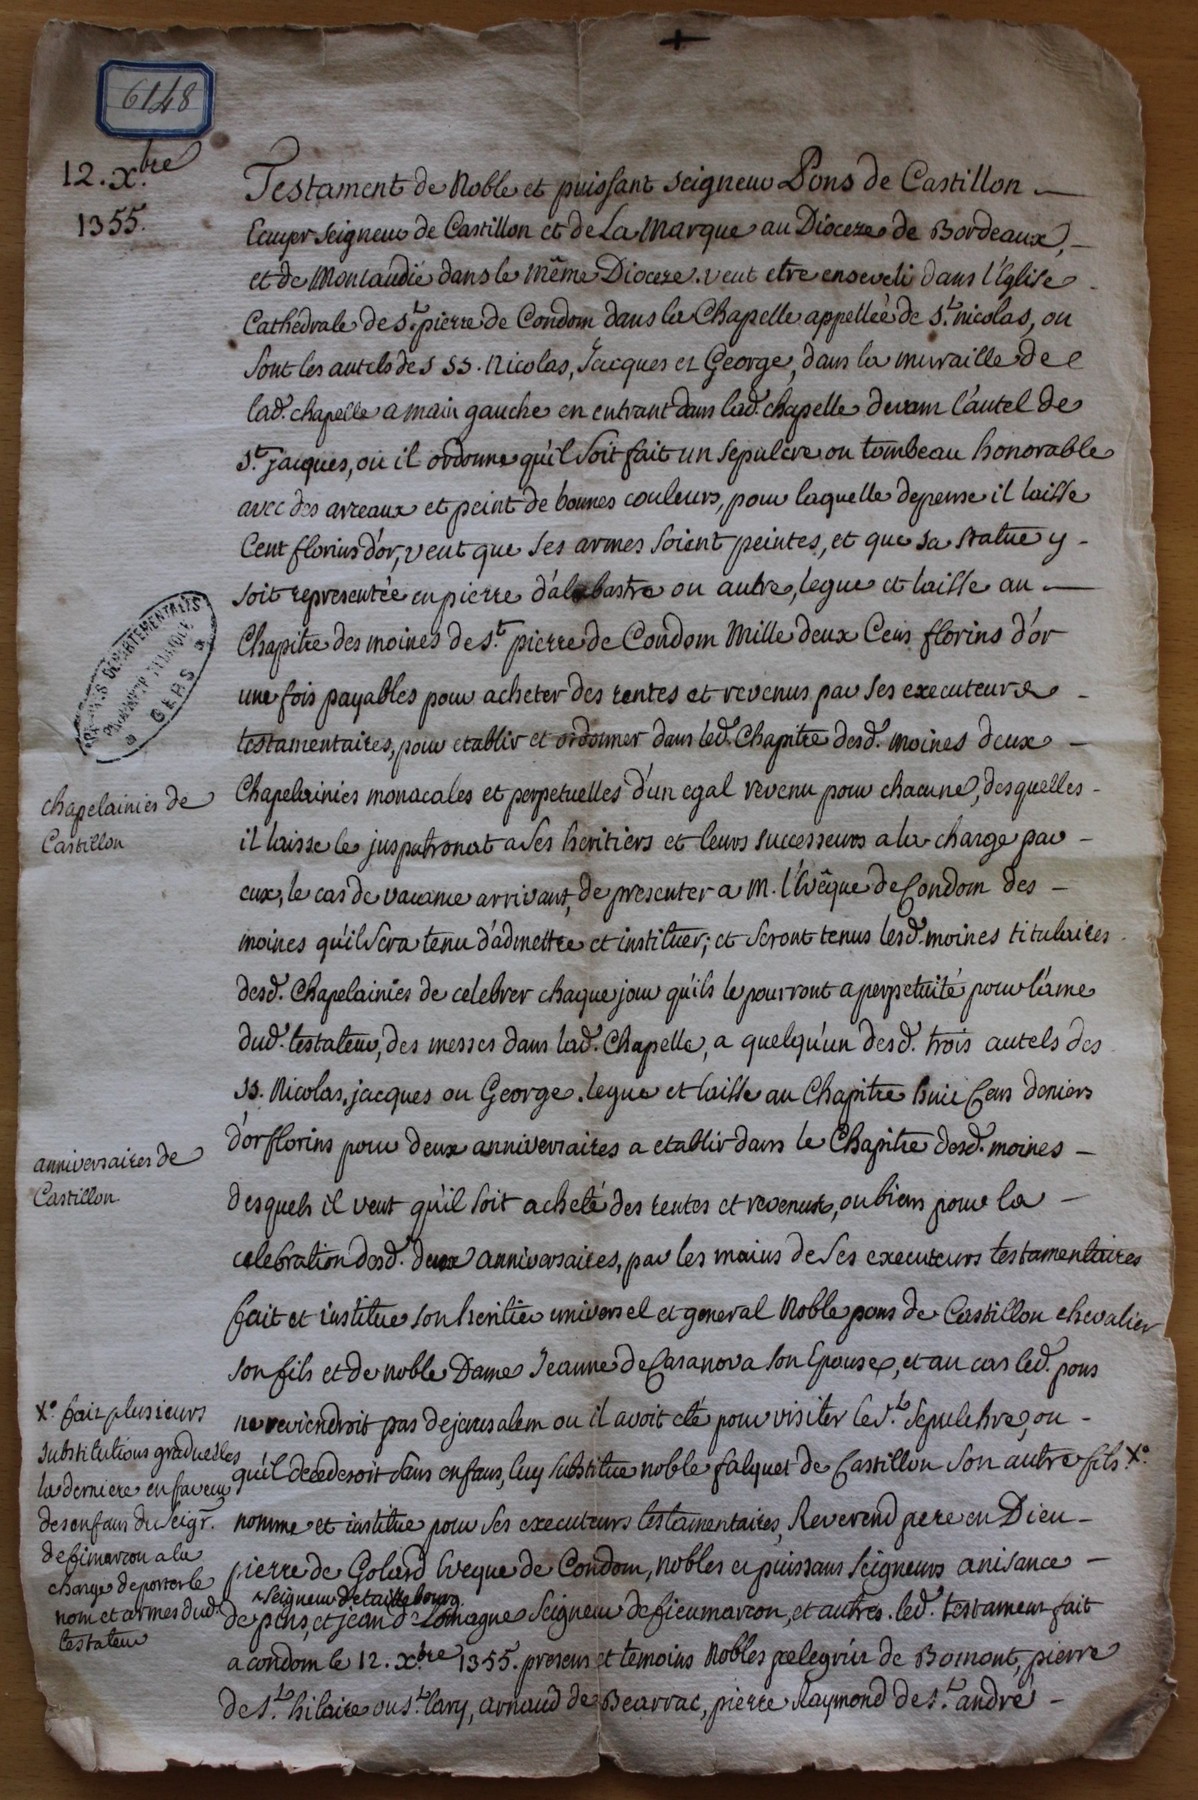 6148
12. X.bre
1355.
Testament de Noble et puissant seigneur Pons de Castillon
Ecuyer seigneur de Castillon et de La Marque au Dioceze de Bordeaux,
et de Moncaudié dans le même Dioceze. veut etre enseveli dans l'Eglise
Cathedrale de St. pierre de Condom dans la Chapelle appellée de St. nicolas, ou
sont les autels des SS. Nicolas, Jacques et George, dans la muraille de
lad. chapelle a main gauche en entrant dans lad. chapelle devant l'autel de
St. jacques, où il ordonne qu'il soit fait un sepulcre ou tombeau honorable
avec des arceaux et peint de bonnes couleurs, pour laquelle depense il laisse
Cent florins d'or, veut que ses armes soient peintes, et que sa statue y
soit representée en pierre d'alabastre ou autre, legue et laisse au
Chapitre des moines de St. pierre de Condom Mille deux Cens florins d'or
une fois payables pour acheter des rentes et revenus par ses executeurs
testamentaires, pour etablir et ordonner dans led. Chapitre desd. moines deux
chapelainies de
Castillon
Chapelainies monacales et perpetuelles d'un egal revenu pour chacune, desquelles
il laisse le juspatronat a ses heritiers et leurs successeurs a la charge par
eux, le cas de vacance arrivant, de presenter a M. l'Evêque de Condom des
moines qu'il sera tenu d'admettre et instituer; et seront tenus lesd. moines titulaires
desd. Chapelainies de celebrer chaque jour qu'ils le pourront a perpetuité pour l'ame
dud. testateur, des messes dans lad. Chapelle, a quelqu'un desd. trois autels des
SS. Nicolas, jacques ou George. legue et laisse au Chapitre huit Cens deniers
d'or florins pour deux anniversaires a etablir dans le Chapitre desd. moines
anniversaires de
Castillon
desquels il veut qu'il soit acheté des rentes et revenus, ou biens pour la
celebration desd. deux anniversaires, par les mains de ses executeurs testamentaires
fait et institue son heritier universel et general Noble pons de Castillon chevalier
son fils et de noble Dame Jeanne de Casanova son Epouse, et au cas led. pons
ne reviendroit pas de jerusalem ou il avoit eté pour visiter le St. Sepulchre, ou
qu'il decederoit sans enfans, luy substitue noble falquet de Castillon son autre fils X°
X° fait plusieurs
substitutions graduelles
la derniere en faveur
des enfans du Seigr.
de fimarcon a la
charge de porter le
nom et armes dud.
testateur
nomme et institue pour ses executeurs testamentaires, Reverend pere en Dieu
pierre de Golard Eveque de Condom, nobles et puissans seigneurs anisance
seigneur de taillebourg
de pins, et jean de Lomagne seigneur de fieumarcon, et autres. led. testament fait
a condom le 12. Xbre 1355. presens et temoins Nobles pelegrin de Bomont, pierre
de St. hilaire ou St. lary, arnaud de Bearrac, pierre Raymond de St. andré